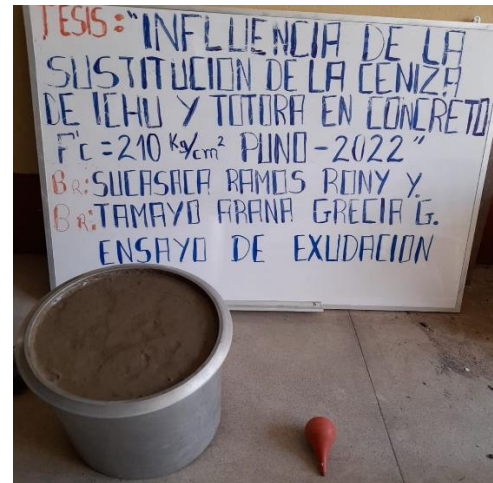 TESIS: "INFLUENCIA DE LA
SUSTITUCION DE LA CENIZA
DE ICHU Y TOTORA EN CONCRETO
F'c = 210 Kg/cm² PUNO - 2022"
Br: SUCASACA RAMOS RONY Y.
Br: TAMAYO ARANA GRECIA G.
ENSAYO DE EXUDACION